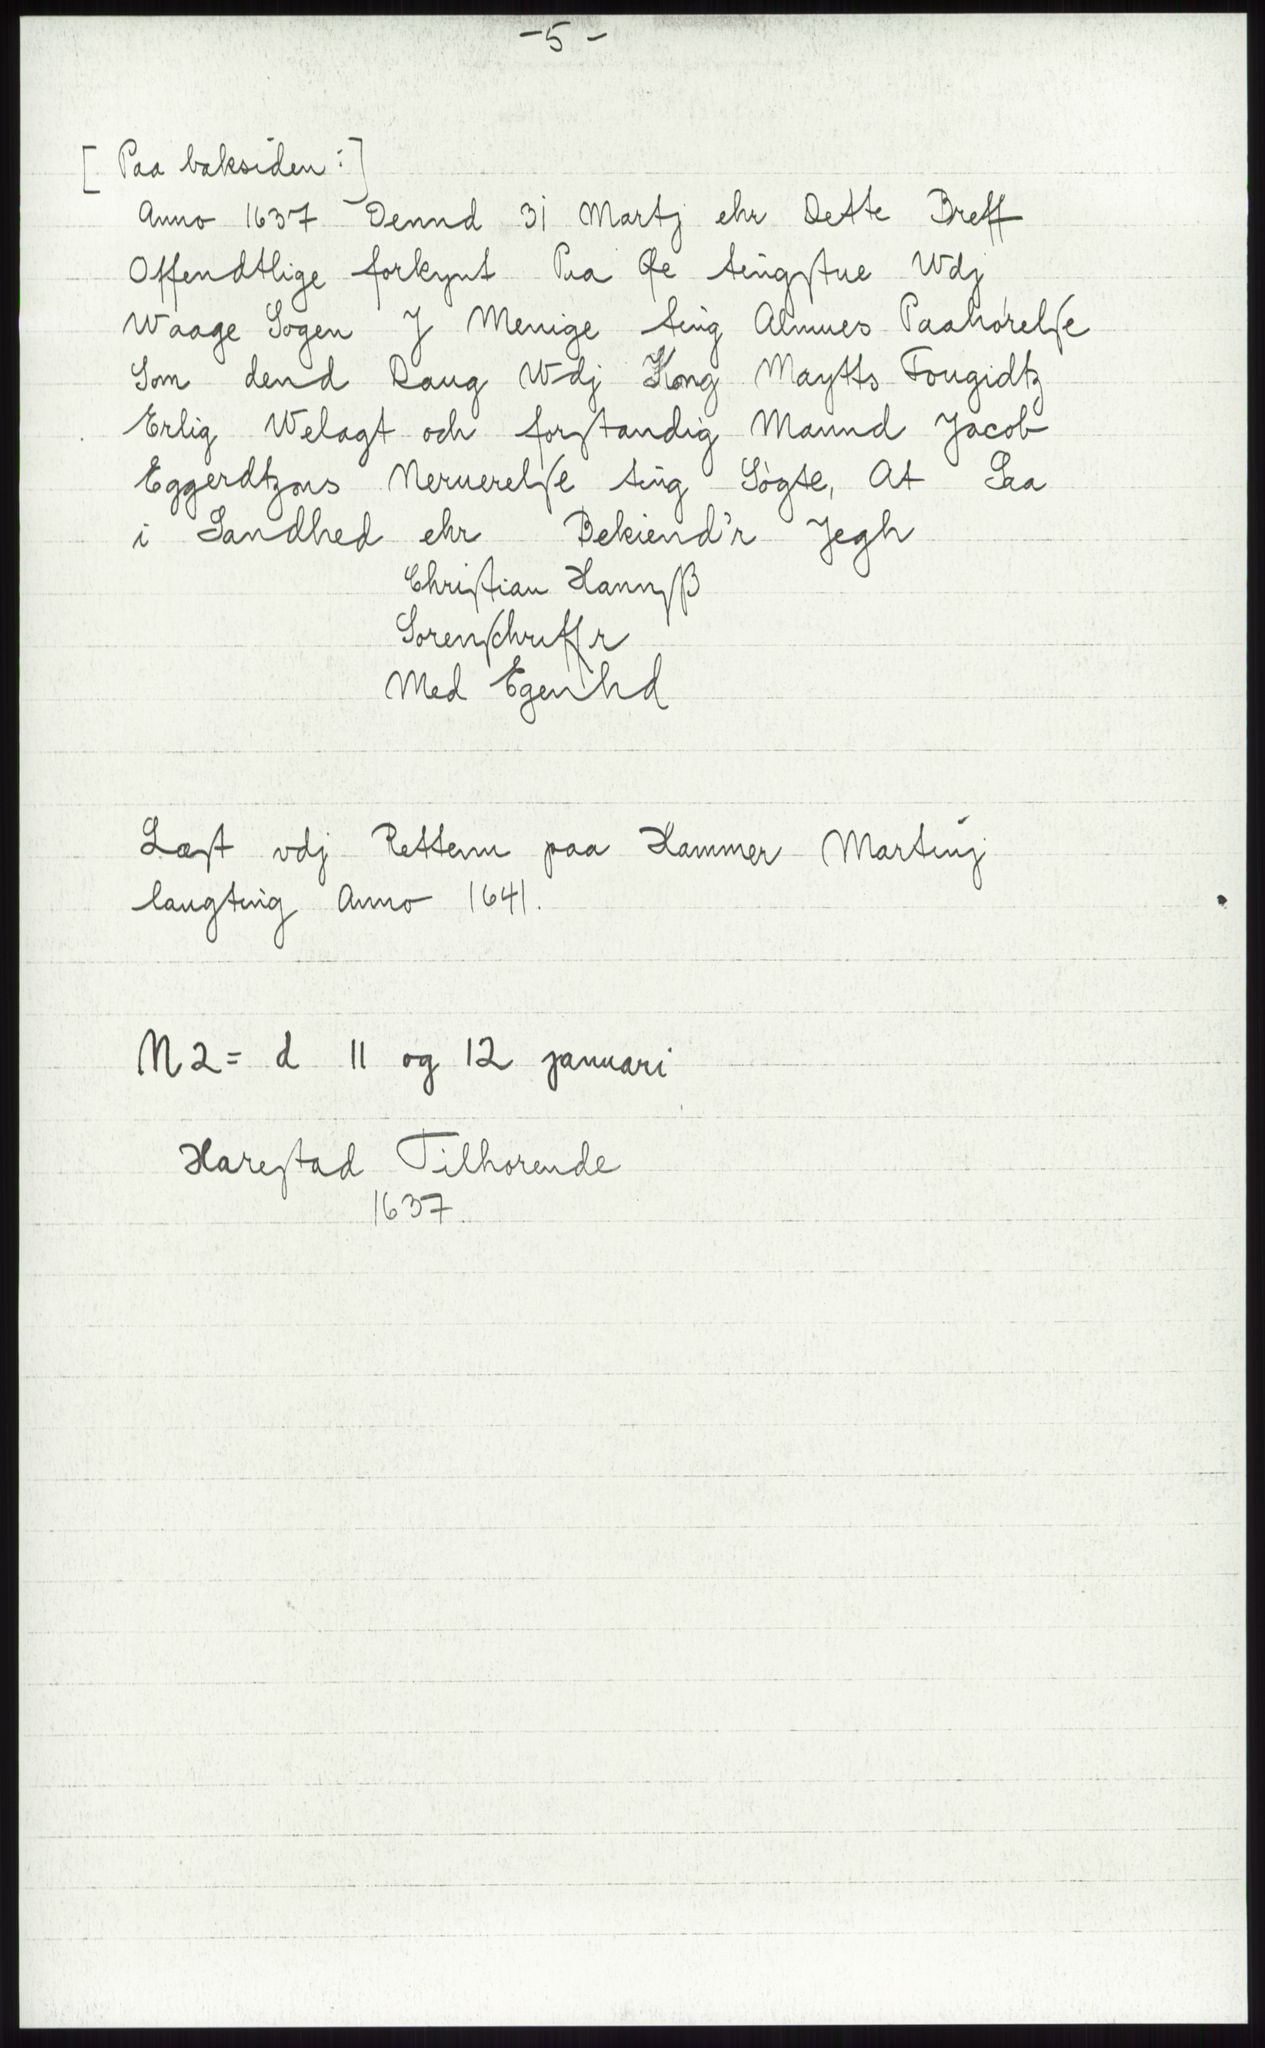 -5-
[Paa baksiden:]
Anno 1637 Dennd 31 Martj ehr Dette Breff
Offendtlige forkynt Paa Qe tingstue Wdj
Waage Sogen J Menige ting Almues Paahörelse
Som dend Daug Wdj Kong Maytts Fougidtz
Erlig Welagt och forstandig Mannd Jacob
Eggerdtzons Neruerelse ting Sögte, At Saa
i Sandhed ehr Bekiend'r Jegh
Christian Hannsß
Sorenschriffr
Med Egen hd
Læst vdj Rettenn paa Hammer Martinj
laugting Anno 1641.
N 2= d 11 og 12 januari
Harestad Tilhorende
1637